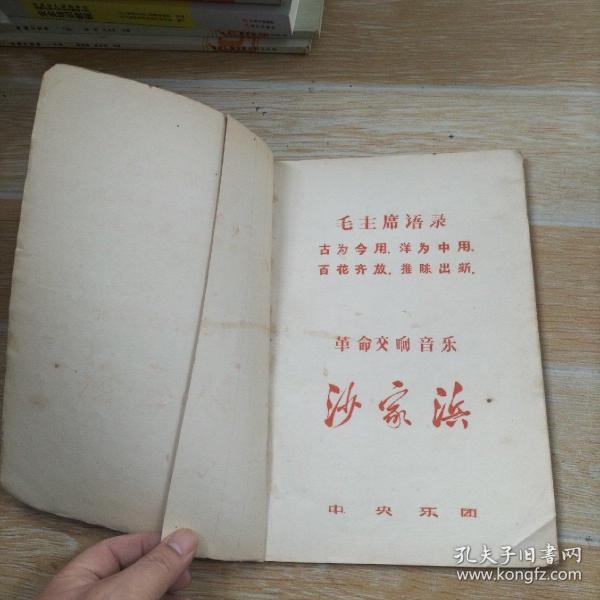 毛主席语录
古为今用,洋为中用,
百花齐放,推陈出新。
革命交响音乐
沙家浜
中央乐团
孔夫子旧书网
www.kongfz.com